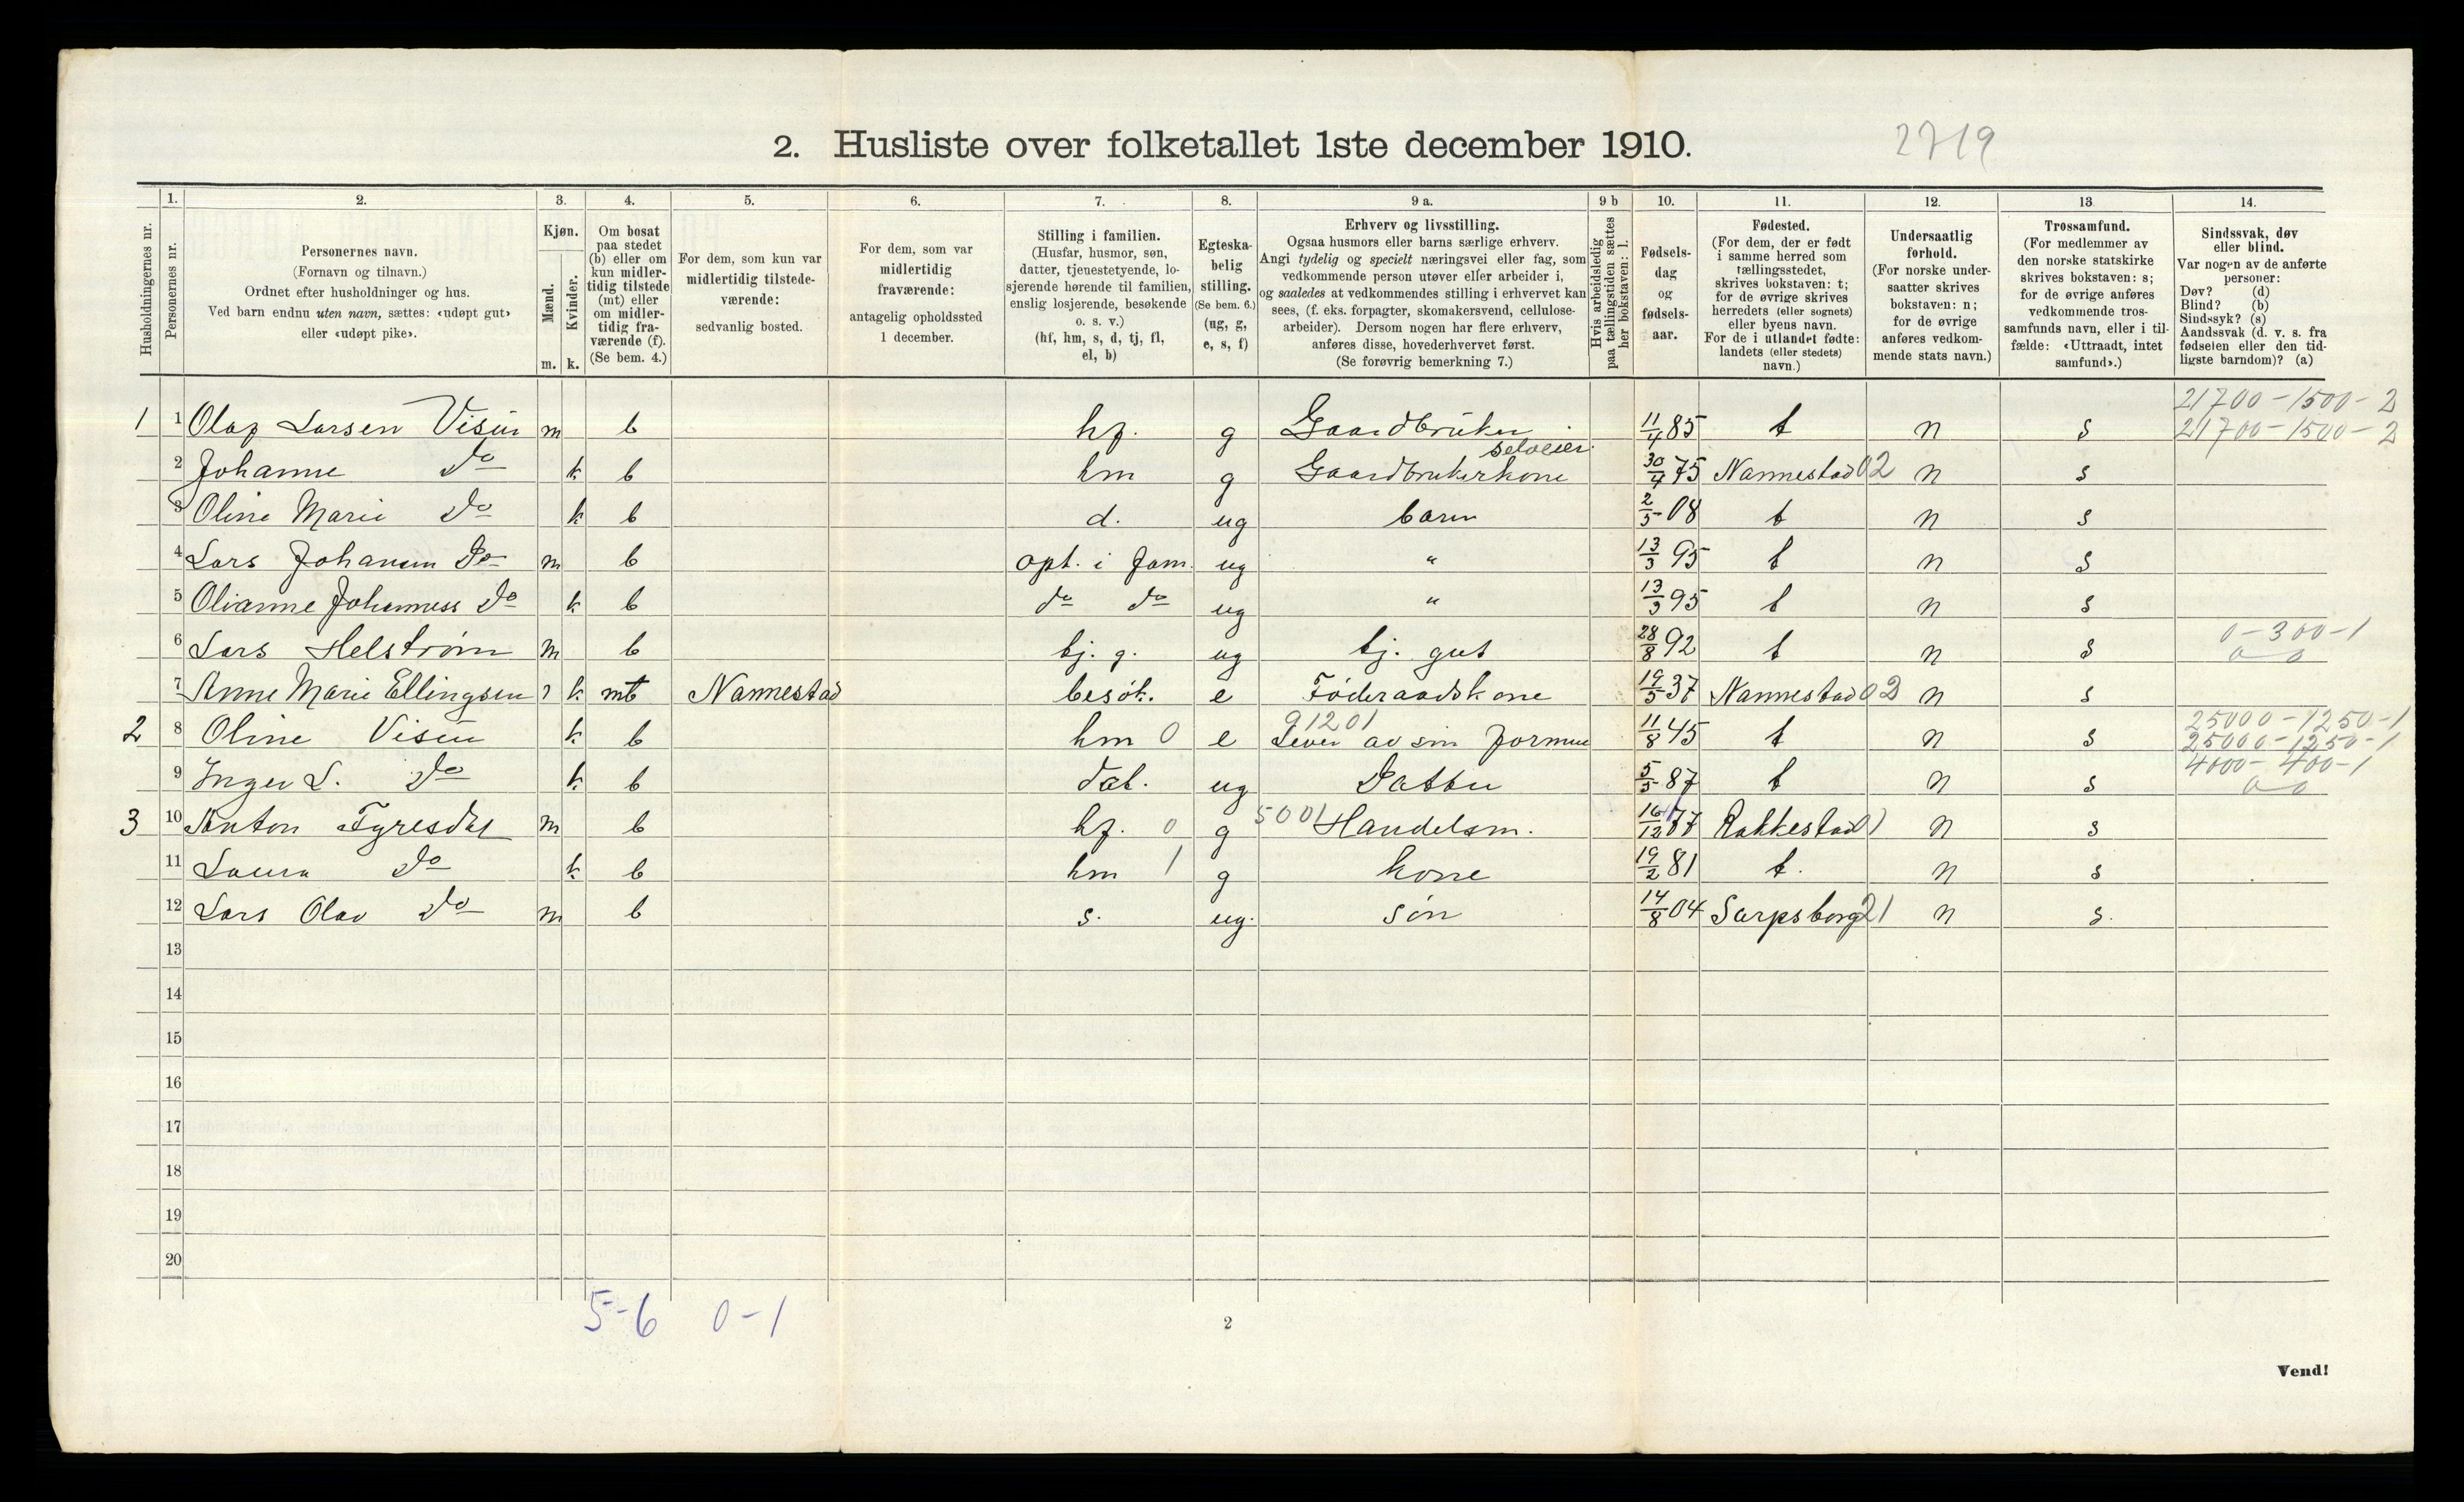 2. Husliste over folketallet 1ste december 1910. 2719
Husholdningernes nr.
1. Personernes nr.
2. Personernes navn. (Fornavn og tilnavn.) Ordnet efter husholdninger og hus. Ved barn endnu uten navn, sættes: «udøpt gut» eller «udøpt pike».
3. Kjøn. Mænd. m. Kvinder. k.
4. Om bosat paa stedet (b) eller om kun midlertidig tilstede (mt) eller om midlertidig fraværende (f). (Se bem. 4.)
5. For dem, som kun var midlertidig tilstedeværende: sedvanlig bosted.
6. For dem, som var midlertidig fraværende: antagelig opholdssted 1 december.
7. Stilling i familien. (Husfar, husmor, søn, datter, tjenestetyende, losjerende hørende til familien, enslig losjerende, besøkende o. s. v.) (hf, hm, s, d, tj, fl, el, b)
8. Egteskabelig stilling. (Se bem. 6.) (ug, g, e, s, f)
9 a. Erhverv og livsstilling. Ogsaa husmors eller barns særlige erhverv. Angi tydelig og specielt næringsvei eller fag, som vedkommende person utøver eller arbeider i, og saaledes at vedkommendes stilling i erhvervet kan sees, (f. eks. forpagter, skomakersvend, cellulosearbeider). Dersom nogen har flere erhverv, anføres disse, hovederhvervet først. (Se forøvrig bemerkning 7.)
9 b Hvis arbeidsledig paa tællingstiden sættes her bokstaven: l.
10. Fødselsdag og fødselsaar.
11. Fødested. (For dem, der er født i samme herred som tællingsstedet, skrives bokstaven: t; for de øvrige skrives herredets (eller sognets) eller byens navn. For de i utlandet fødte: landets (eller stedets) navn.)
12. Undersaatlig forhold. (For norske undersaatter skrives bokstaven: n; for de øvrige anføres vedkommende stats navn.)
13 Trossamfund. (For medlemmer av den norske statskirke skrives bokstaven: s; for de øvrige anføres vedkommende trossamfunds navn, eller i tilfælde: «Uttraadt, intet samfund».)
14. Sindssvak, døv eller blind. Var nogen av de anførte personer: Døv? (d) Blind? (b) Sindssyk? (s) Aandssvak (d. v. s. fra fødselen eller den tidligste barndom)? (a)
21700-1500-2
1 1 Olaf Larsen Visin m b hf. g Gaardbruker selveier 11/4 85 t n s 21700-1500-2
2 Johanne do k b hm g Gaardbrukerkone 30/4 75 Nannestad 02 n s
3 Oline Marie do k b d. ug barn 2/5 08 t n s
4 Lars Johansen do m b opt. i fam. ug " 13/3 95 t n s
5 Olianne Johanness do k b do do ug " 13/3 95 t n s
0-300-1
6 Lars Helstrøm m b tj. g. ug tj. gut 28/8 92 t n s 0-0
7 Anne Marie Ellingsen k mt Nannestad besøk. e Føderaadskone 19/5 37 Nannestad 02 n s
91201 25000-1250-1
2 8 Oline Visin k b hm 0 e Lever av sin formue 11/8 45 t n s 25000-1250-1
4000-400-1
9 Inger L. do k b dat. ug Datter 5/5 87 t n s 0-0
3 10 Anton Fyresdal m b hf. 0 g 5001 Handelsm. 16/12 77 Rakkestad 01 n s
11 Laura do k b hm 1 g kone 19/2 81 t. n s
12 Lars Olav do m b s. ug. søn 14/8 04 Sarpsborg 21 n s.
13
14
15
16
17
18
19
20
5-6 0-1
2
Vend!